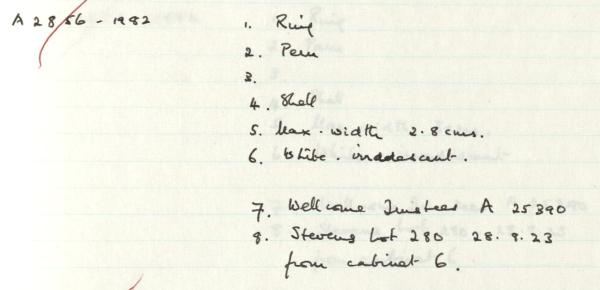 A 2856 - 1982
1. Ring
2. Peru
3.
4. Shell
5. Max. width 2.8 cms.
6. White. iridescent.
7. Wellcome Trustees A 25390
8. Stevens Lot 280 28.8.23
from cabinet 6.